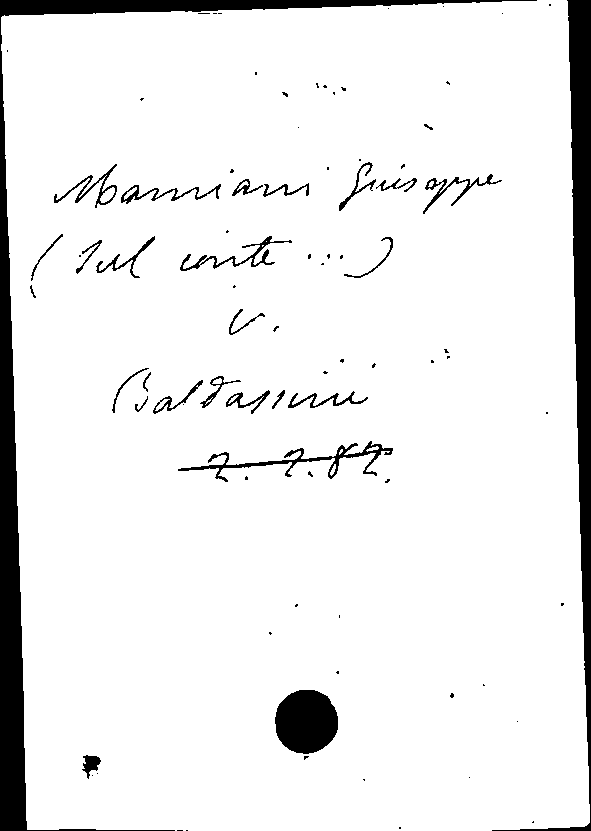 Mamiani Guiseppe
(Sul conte ...)
v.
Baldassini
2. 2. 82.